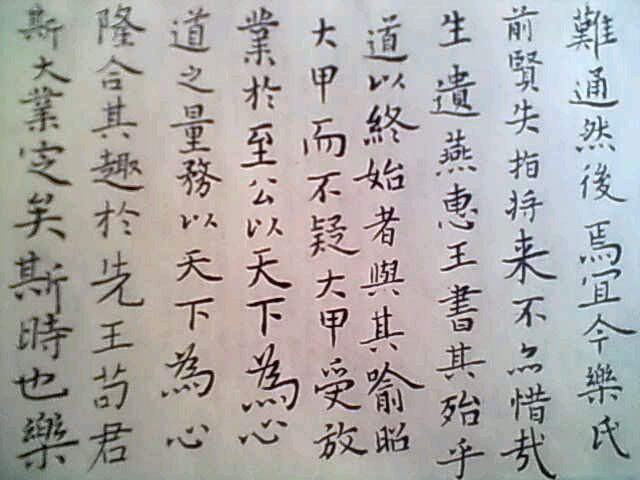 難通然後焉宜今樂氏
前賢失指将来不亦惜哉
生遺燕惠王書其殆乎
道以終始者與其喻昭
大甲而不疑大甲受放
業於至公以天下為心
道之量務以天下為心
隆合其趣於先王苟君
斯大業定矣斯時也樂